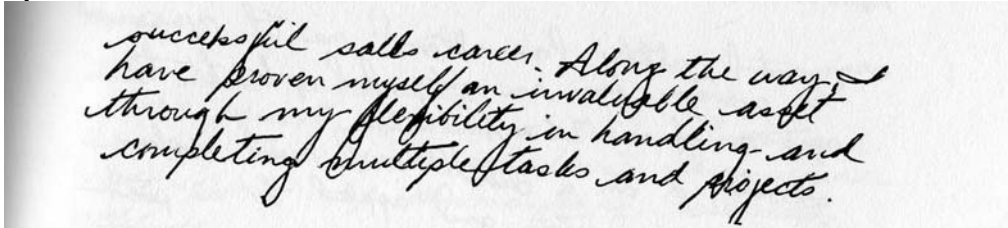 successful sales career. Along the way, I
have proven myself an invaluable asset
through my flexibility in handling and
completing multiple tasks and projects.